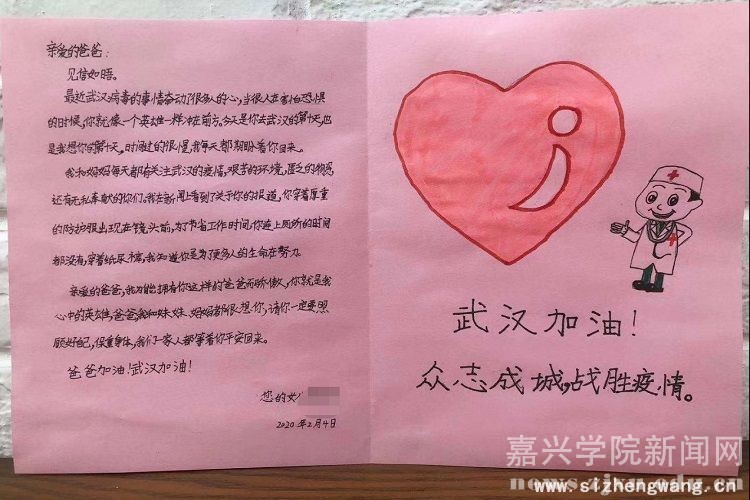 亲爱的爸爸：
见信如晤。
最近武汉病毒的事情牵动了很多人的心，当很人在害怕恐惧
的时候，你就像一个英雄一样冲在前方。今天是你去武汉的第十天，也
是我想你的第十天，时间过的很慢，我每天都期盼着你回来。
我和妈妈每天都有关注武汉的疫情，艰苦的环境，匮乏的物资，
还有无私奉献的你们。我在新闻上看到了关于你的报道，你穿着厚重
的防护服出现在镜头前，为了节省工作时间，你连上厕所的时间
都没有，穿着纸尿裤，我知道你是为了使多人的生命在努力。
亲爱的爸爸，我为能拥有你这样的爸爸而骄傲，你就是我
心中的英雄，爸爸，我和妹妹、妈妈都很想你，请你一定要照
顾好自己，保重身体，我们一家人都等着你平安回来。
爸爸加油！武汉加油！
您的女
2020年2月4日
武汉加油！
众志成城，战胜疫情。
嘉兴学院新闻网
www.sizhengwang.cn